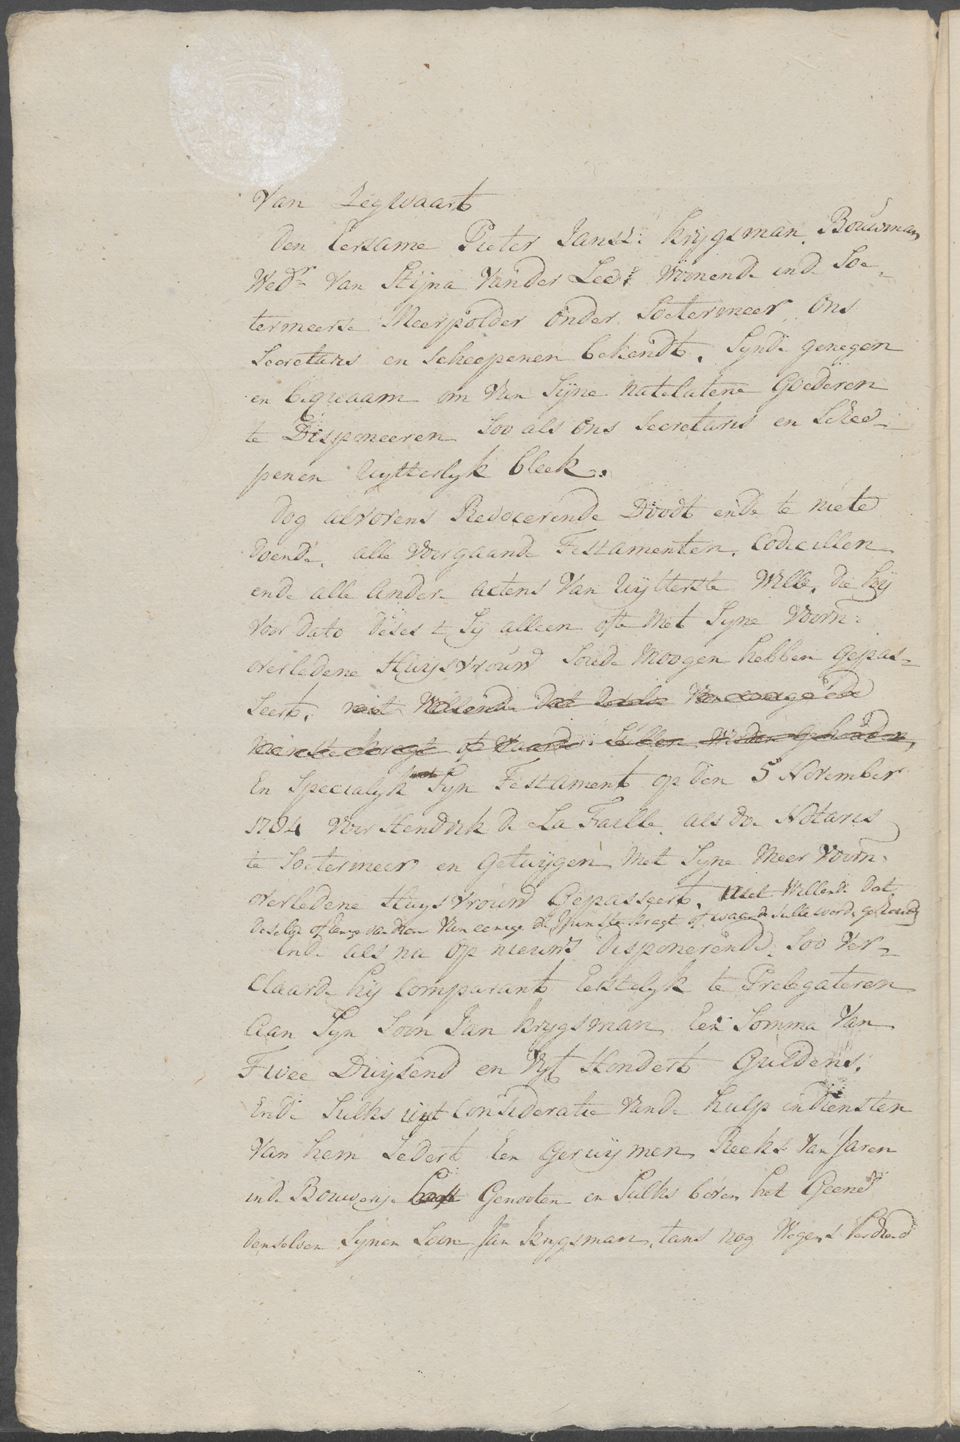 Van Zegwaart
Den Eersame Pieter Jansz: Krygsman, Bouwman
Wedr. Van Stijna Vander Leer Wonende inde Soe-
termeerse Meerpolder onder Soetermeer, Ons
Secretaris en Scheepenen bekendt, Synde genegen
en bequaam om Van Sijne natelatene Goederen
te Disponeeren Soo als Ons Secretaris en Schee-
penen Uytterlyk bleek.
Dog alvorens Revocerende Doodt ende te niete
doende, alle Voorgaande Testamenten, Codicillen
ende alle Andere actens Van Uytterste Wille, die hij
voor dato deses 't Sij alleen ofte Met Syne Voorn:
overledene Huysvrouw Soude Moogen hebben gepas-
seert, niet Willende dat deselve Van eenige de
minste kragt of Waarde Sullen Werden gehouden,
En Specialyk Syn Testament op den 5 November
1784 Voor Hendrik de La Faille, als doe Notaris
te Soetermeer en getuygen Met Syne Meer Voorn:
overledene Huysvrouw Gepasseert, niet Willende dat
deselve of enige van dien Van eenige de Minste kragt of waarde sulle worde gehoude
Ende als na op nieuws disponerende, Soo Ver-
claarde hij Comparant Eerstelyk te Prelegateren
Aan Syn Soon Jan Krygsman, Een Somma Van
Twee Duysend en Vyf Hondert Guldens,
Ende Sulks uyt Consideratie Vande hulp en diensten
Van hem Sedert Een Geruymen Reeks Van Jaren
inde Bouwerije heeft Genooten en Sulks boven het Geene
denselven Synen Soon Jan Krygsman, tans nog Wegens Verdiend